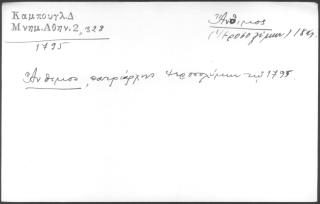 Καμπουγλ.Δ
Μνημ.Αθην.2, 328
1795
Ἄνθιμος
(Ἱεροσολύμων)
Ἄνθιμος, πατριάρχης Ἱεροσολύμων τῷ 1795.